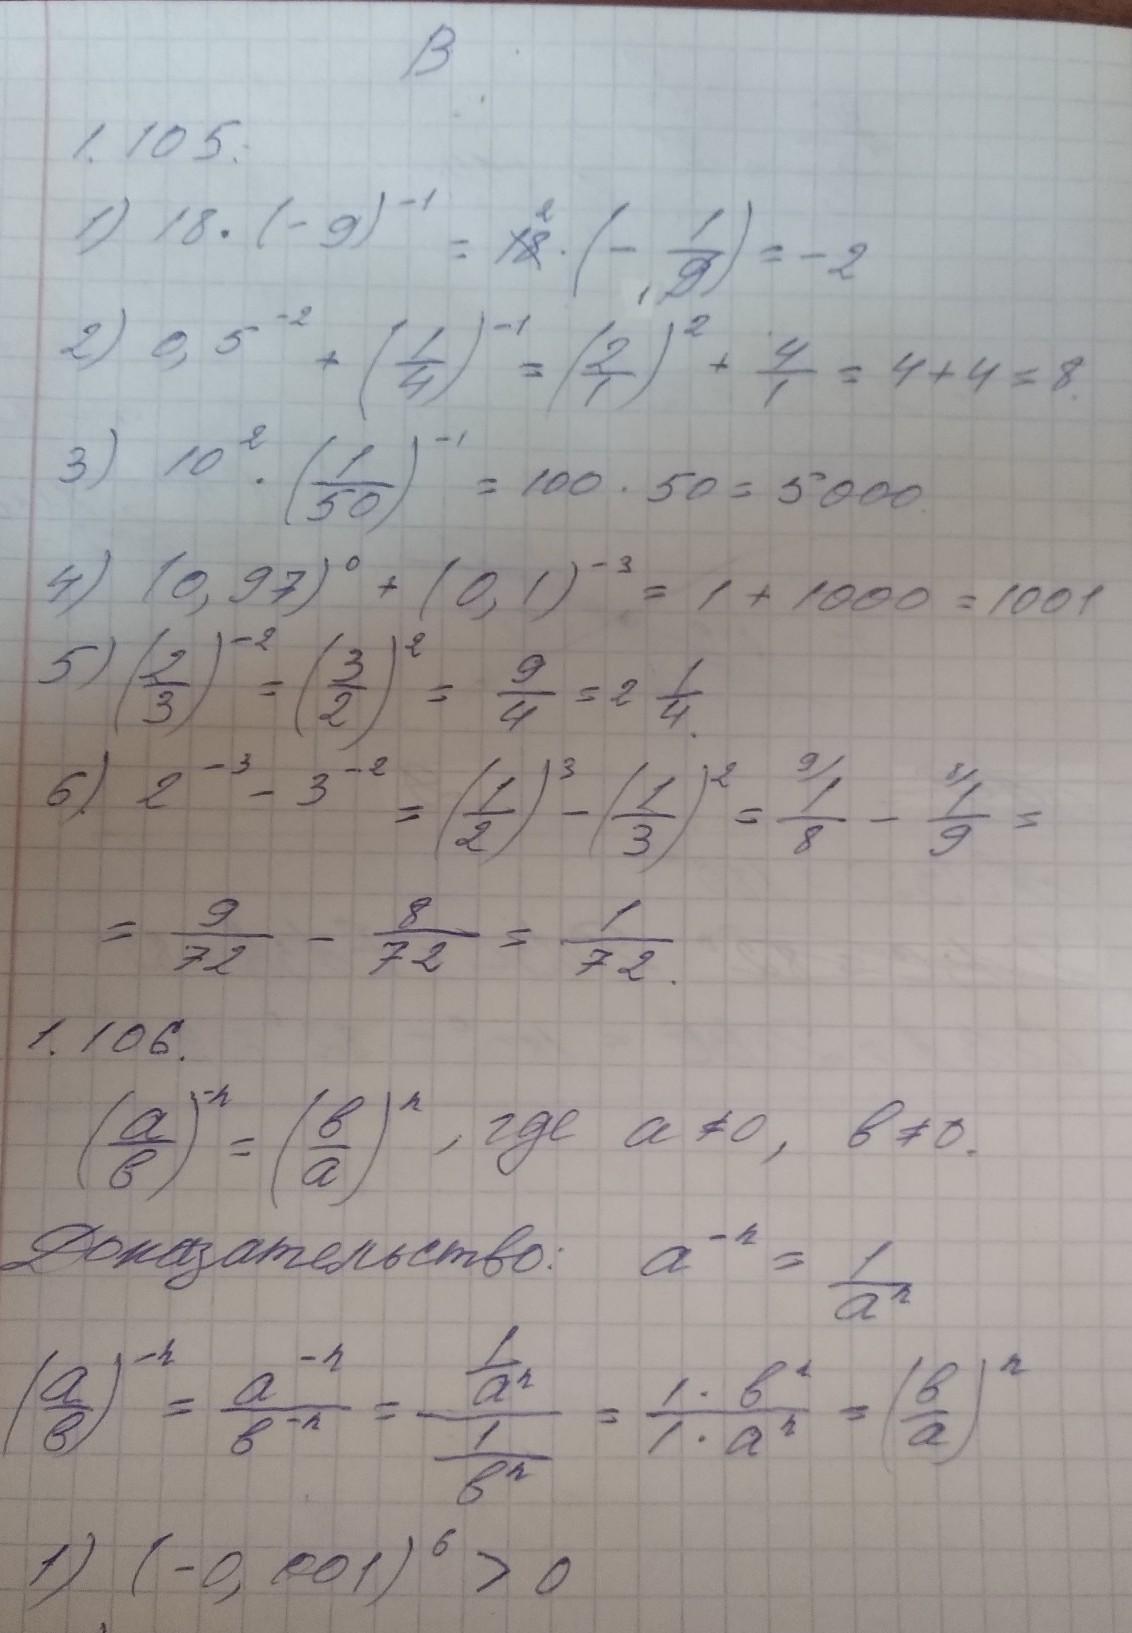 В
1.105.
1) 18·(-9)^{-1} = 18^{2}·(-1/9_{1}) = -2
2) 0,5^{-2} + (1/4)^{-1} = (2/1)^{2} + 4/1 = 4+4=8.
3) 10^{2}·(1/50)^{-1} = 100·50=5000.
4) (0,97)^{0} + (0,1)^{-3} = 1+1000=1001
5) (2/3)^{-2} = (3/2)^{2} = 9/4 = 2 1/4.
6) 2^{-3} - 3^{-2} = (1/2)^{3} - (1/3)^{2} = ^{9/}1/8 - ^{8/}1/9 =
= 9/72 - 8/72 = 1/72.
1.106.
(а/в)^{-n} = (в/а)^{n}, где а≠0, в≠0.
Доказательство: a^{-n} = 1/a^{n}
(а/в)^{-n} = a^{-n}/в^{-n} = (1/a^{n})/(1/в^{n}) = (1·в^{n})/(1·a^{n}) = (в/а)^{n}
1) (-0,001)^{6} > 0